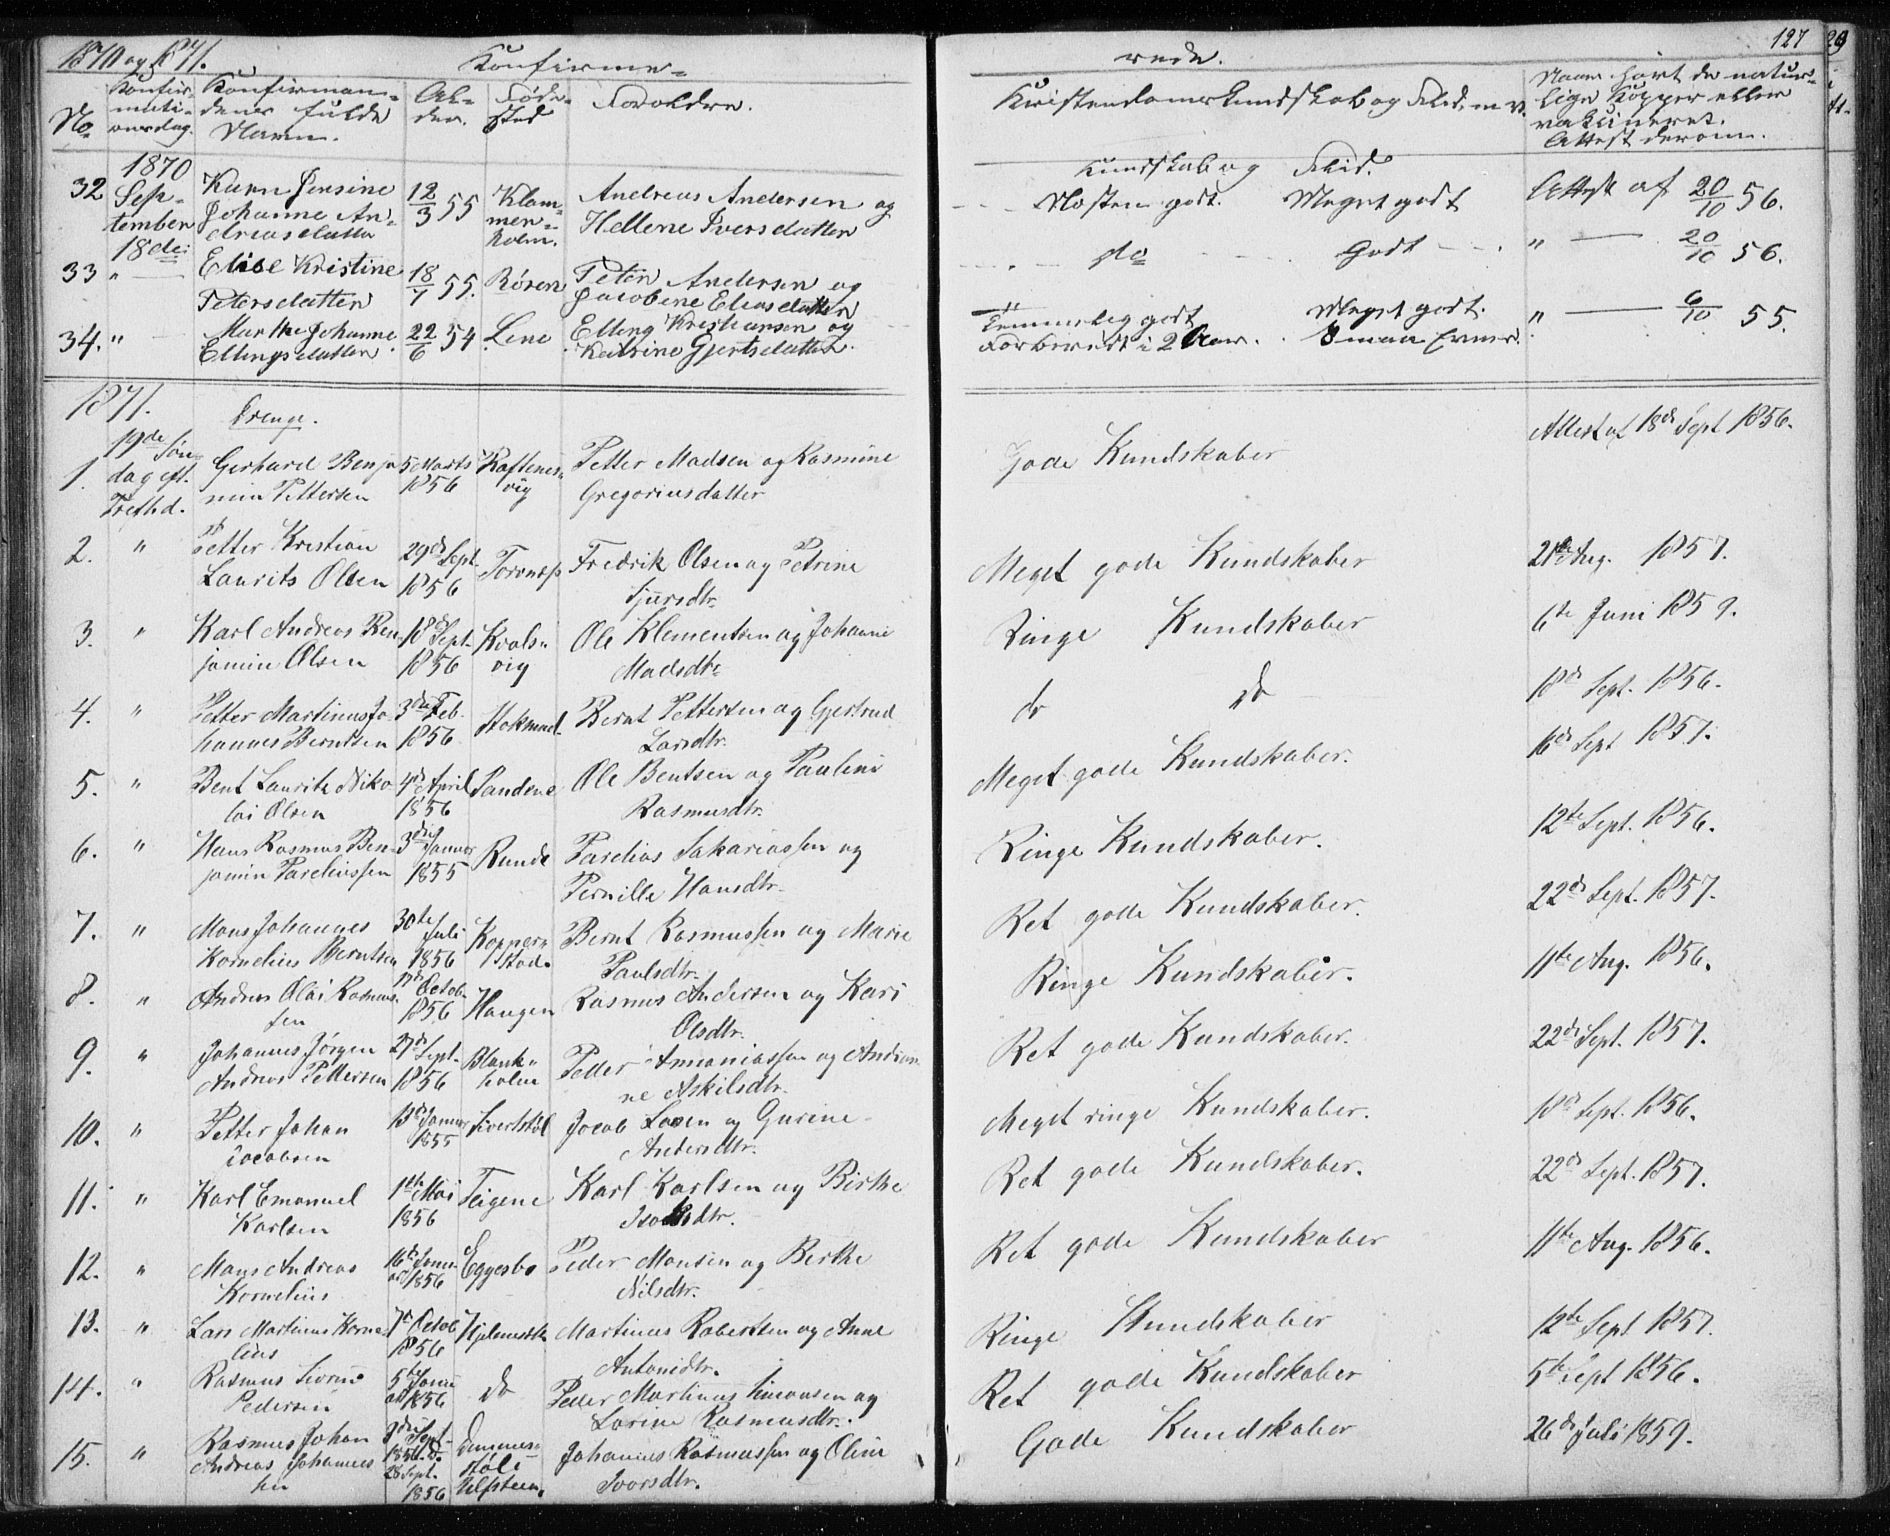 1870 og 1871. Konfirme=
rede. 127
No Konfirmationsdag. Konfirmandens fulde Navn. Alder. Fødested Forældre. Kristendomskundskab og Flid m. v. Naar havt de naturlige Kopper eller vakcineret. Attest derom.
1870 Kundskab og Flid.
32 September 18de Karn Jensine Johanne Andreasdatter 12/3 55 Klammenholm. Andreas Andersen og Hellene Iversdatter Næsten godt. Meget godt Attest af 20/10 56.
33 " Elise Kristine Petersdatter 18/7 55. Røren Peter Andersen og Jacobine Eliasdatter do Godt " 20/10 56.
34. " Marthe Johanne Ellingsdatter 22/6 54 Lene Elling Kristiansen og Katrine Gjertsdatter. Temmelig godt Meget godt. " 6/10 55.
Forberedt i 2 Aar.
1871. Drenge.
1. 19de Søndag eft. Trefhd. Gerhard Benjamin Pettersen 5 Marts 1856 Raftenesvig Petter Madsen og Rasmine Gregoriusdatter Gode Kundskaber Attest af 18de Sept 1856.
2. " Petter Kristian Laurits Olsen 29de Sept. 1856 Fredrik Olsen og Petrine Sjursdtr. Meget gode Kundskaber 21de Aug. 1857.
3. " Karl Andreas Benjamin Olsen 18de Sept. 1856 Kvalsvig Ole Klementsen og Johanne Madsdtr Ringe Kundskaber 6te Juni 1859.
4. " Petter Martinus Johannes Berntsen 3die Feb. 1856 Stoksund. Bernt Pettersen og Gjertrud Larsdtr. do do 18de Sept. 1856.
5. " Bent Laurits Nikolai Olsen 4de April 1856 Sandene Ole Bentsen og Pauline Rasmusdtr. Meget gode Kundskaber. 16de Sept 1857.
6. " Hans Rasmus Benjamin Pareliussen 3die Januar 1855 Runde Parelius Sakariassen og Pernille Hansdtr. Ringe Kundskaber. 12te Sept. 1856.
7. " Mons Johannes Kornelius Berntsen 30te Juli 1856 Kopperstad. Bernt Rasmussen og Marie Paulsdtr. Ret gode Kundskaber. 22de Sept. 1857.
8. " Andreas Olai Rasmussen Octob. 1856 Haugen Rasmus Andersen og Kari Olsdtr. Ringe Kundskaber. 11te Aug. 1856.
9. " Johannes Jørgen Andreas Pettersen 27de Sept. 1856 Blankholm Petter Annaniassen og Andrianne Askilsdtr. Ret gode Kundskaber. 22de Sept. 1857.
10. " Petter Johan Jacobsen 13de Januar 1855 Sivertstøl Jacob Larsen og Gurine Andersdtr. Meget ringe Kundskaber. 18de Sept. 1856.
11. " Karl Emanuel Karlsen 1ste Mai 1856 Teigene Karl Karlsen og Birthe Isaksdtr. Ret gode Kundskaber. 22de Sept. 1857.
12. " Mons Andreas Kornelius 16de Januar 1856 Eggesbø Peder Monsen og Berthe Nilsdtr. Ret gode Kundskaber 11te Aug. 1856.
13. " Lars Martinus Kornelius 7de Octob 1856 Martinus Robertsen og Anne Antonidtr. Ringe Kundskaber 12te Sept 1857.
14. " Rasmus Severine Pedersen 5te Januar 1856 do Peder Martinus Simonsen og Lovine Rasmusdtr. Ret gode Kundskaber 5te Sept 1856.
15. " Rasmus Johan Andreas Johannessen Sept. 1856. d. 28 Sept. 1856 Johannes Rasmussen og Oline Ivarsdtr. Gode Kundskaber 26de Juli 1859.